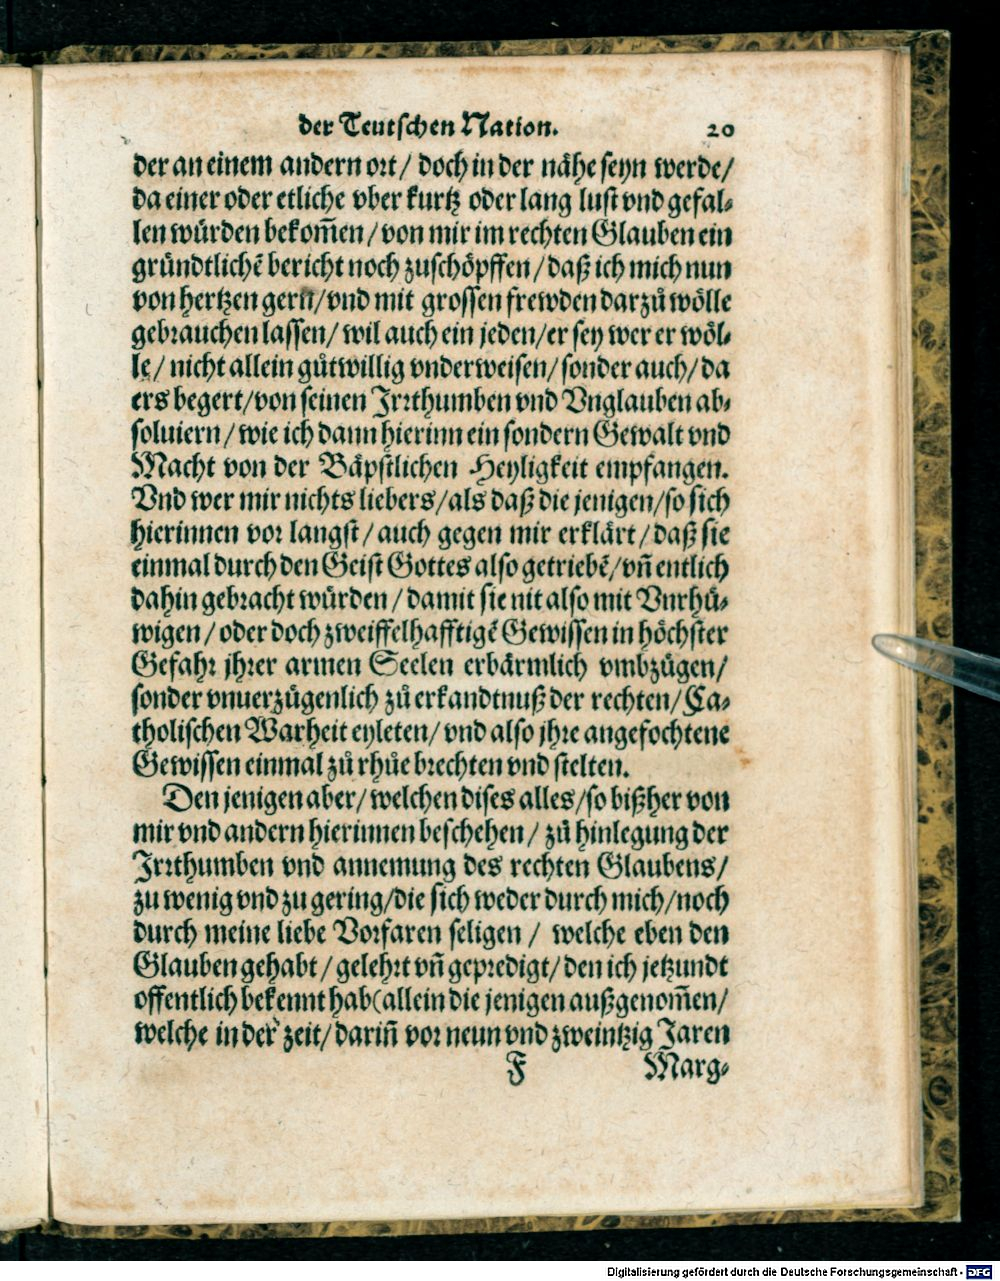 der Teutschen Nation. 20
der an einem andern ort/ doch in der nähe seyn werde/
da einer oder etliche vber kurtz oder lang lust vnd gefal-
len würden bekom̃en/ von mir im rechten Glauben ein
gründtlichẽ bericht noch zuschöpffen/ daß ich mich nun
von hertzen gern/ vnd mit grossen frewden darzů wölle
gebrauchen lassen/ wil auch ein jeden/ er sey wer er wöl-
le/ nicht allein gůtwillig vnderweisen/ sonder auch/ da
ers begert/ von seinen Irrthumben vnd Vnglauben ab-
soluiern/ wie ich dann hierinn ein sondern Gewalt vnd
Macht von der Bäpstlichen Heyligkeit empfangen.
Vnd wer mir nichts liebers/ als daß die jenigen/ so sich
hierinnen vor langst/ auch gegen mir erklärt/ daß sie
einmal durch den Geist Gottes also getriebẽ/ vñ entlich
dahin gebracht würden/ damit sie nit also mit Vnrhů-
wigen/ oder doch zweiffelhafftigẽ Gewissen in höchster
Gefahr jhrer armen Seelen erbärmlich vmbzügen/
sonder vnuerzügenlich zů erkandtnuß der rechten/ Ca-
tholischen Warheit eyleten/ vnd also jhre angefochtene
Gewissen einmal zů rhůe brechten vnd stelten.
Den jenigen aber/ welchen dises alles/ so bißher von
mir vnd andern hierinnen beschehen/ zů hinlegung der
Irrthumben vnd annemung des rechten Glaubens/
zu wenig vnd zu gering/ die sich weder durch mich/ noch
durch meine liebe Vorfaren seligen/ welche eben den
Glauben gehabt/ gelehrt vñ gepredigt/ den ich jetzundt
offentlich bekennt hab (allein die jenigen außgenom̃en/
welche in der zeit/ dariñ vor neun vnd zweintzig Jaren
F Marg-
Digitalisierung gefördert durch die Deutsche Forschungsgemeinschaft - DFG